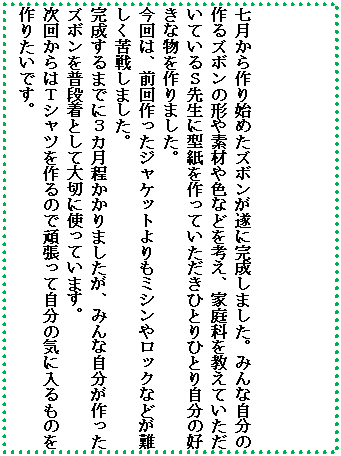 七月から作り始めたズボンが遂に完成しました。みんな自分の
作るズボンの形や素材や色などを考え、家庭科を教えていただ
いているＳ先生に型紙を作っていただきひとりひとり自分の好
きな物を作りました。
今回は、前回作ったジャケットよりもミシンやロックなどが難
しく苦戦しました。
完成するまでに３カ月程かかりましたが、みんな自分が作った
ズボンを普段着として大切に使っています。
次回からはＴシャツを作るので頑張って自分の気に入るものを
作りたいです。